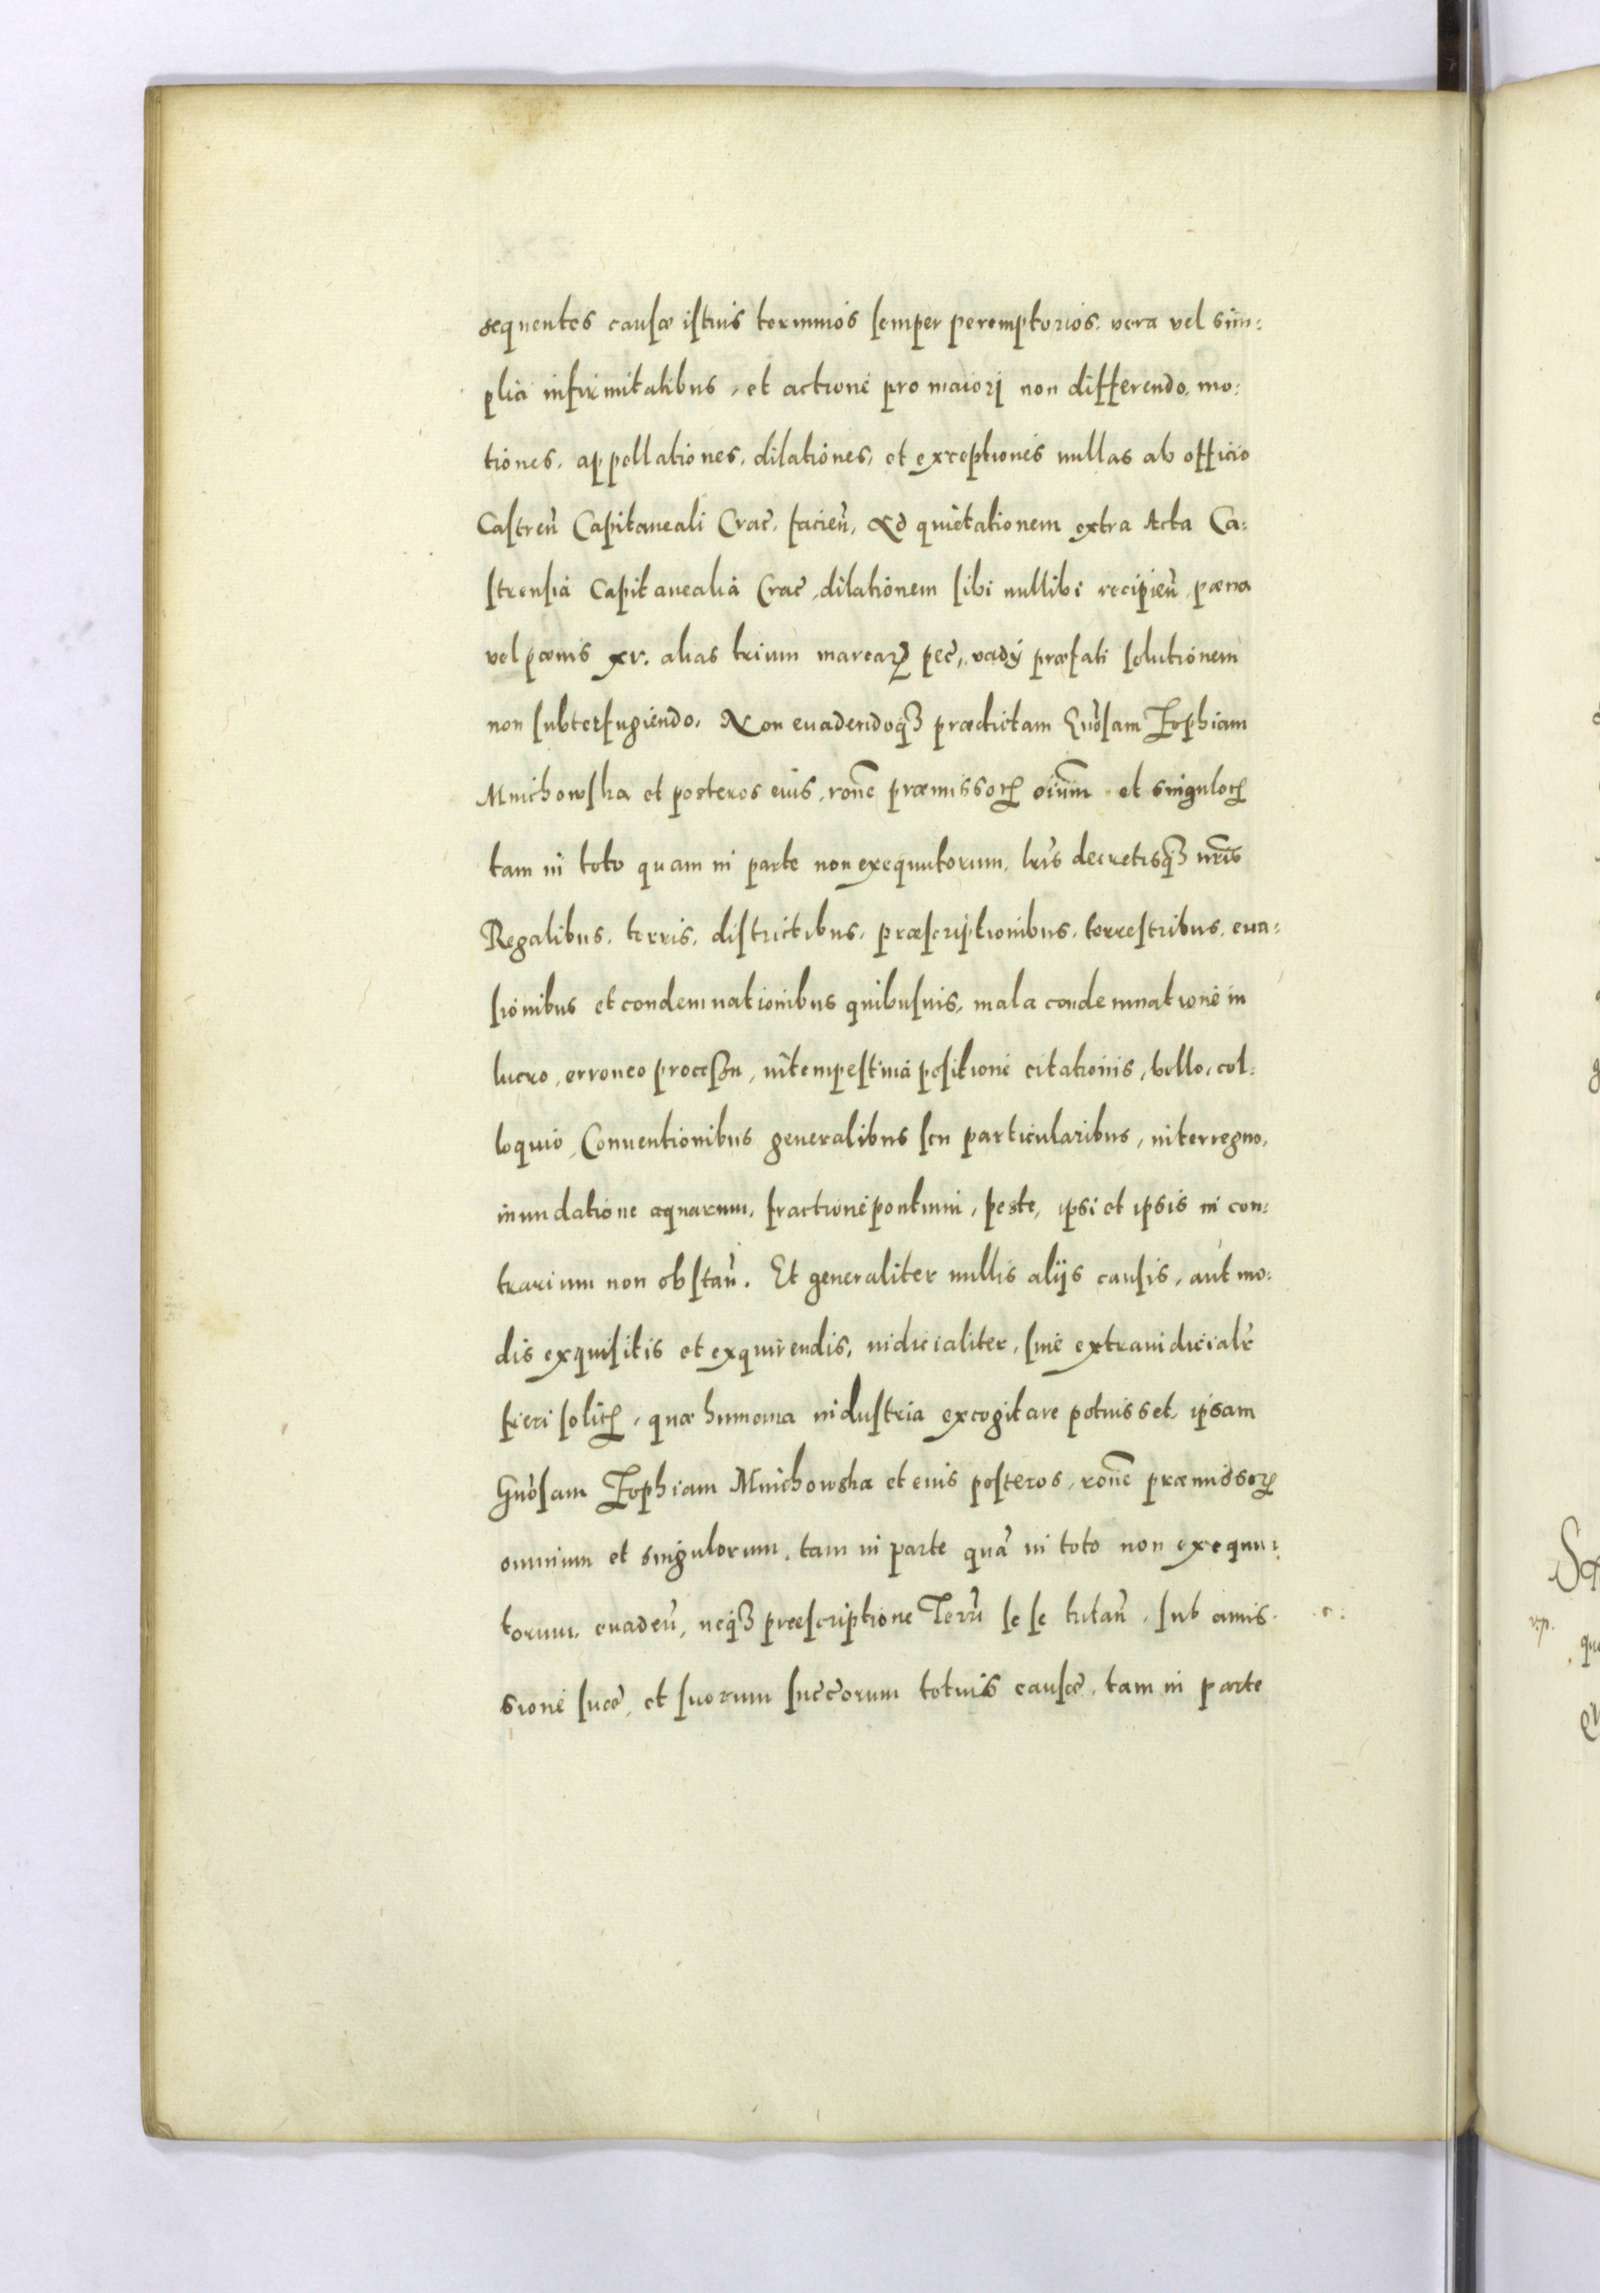 sequentes causæ istius terminos semper peremptorios, vera vel sim:
plici infirmitatibus, et actione pro maiori non differendo, mo:
tiones, appellationes, dilationes, et exceptiones nullas ab officio
Castreñ Capitaneali Crac̃, facieñ, Ad quietationem extra Acta Ca:
strensia Capitanealia Crac̃, dilationem sibi nullibi recipieñ, pæna
vel pænis xv. alias trium marcarꝝ pec̃, vadÿ præfati solutionem
non subterfugiendo. Non euadendoqꝫ prædictam Gñosam Zophiam
Mnichowska et posteros eius, rõne præmissorꝝ oĩum et singulorꝝ
tam in toto quam in parte non exequutorum, lris̃ decretisqꝫ nr̃is
Regalibus, terris, districtibus, præscriptionibus, terrestribus, eua:
sionibus et condemnationibus quibusuis, mala condemnatione in
lucro, erroneo processu, intempestiua positione citationis, bello, col:
loquio, Conuentionibus generalibus seu particularibus, interregno,
inundatione aquarum, fractione pontium, peste, ipsi et ipsis in con:
trarium non obstañ. Et generaliter nullis alijs causis, aut mo:
dis exquisitis et exquirendis, iudicialiter, siue extraiudicialr̃
fieri solitꝝ, quæ humana industria excogitare potuisset, ipsam
Gñosam Zophiam Mnichowska et eius posteros, rõne præmissorꝝ
omnium et singulorum, tam in parte quã in toto non exequu:
torum, euadeñ, neqꝫ præscriptione Terrũ sese tutañ, sub amis:
sione suæ, et suorum succ̃orum totius causæ, tam in parte